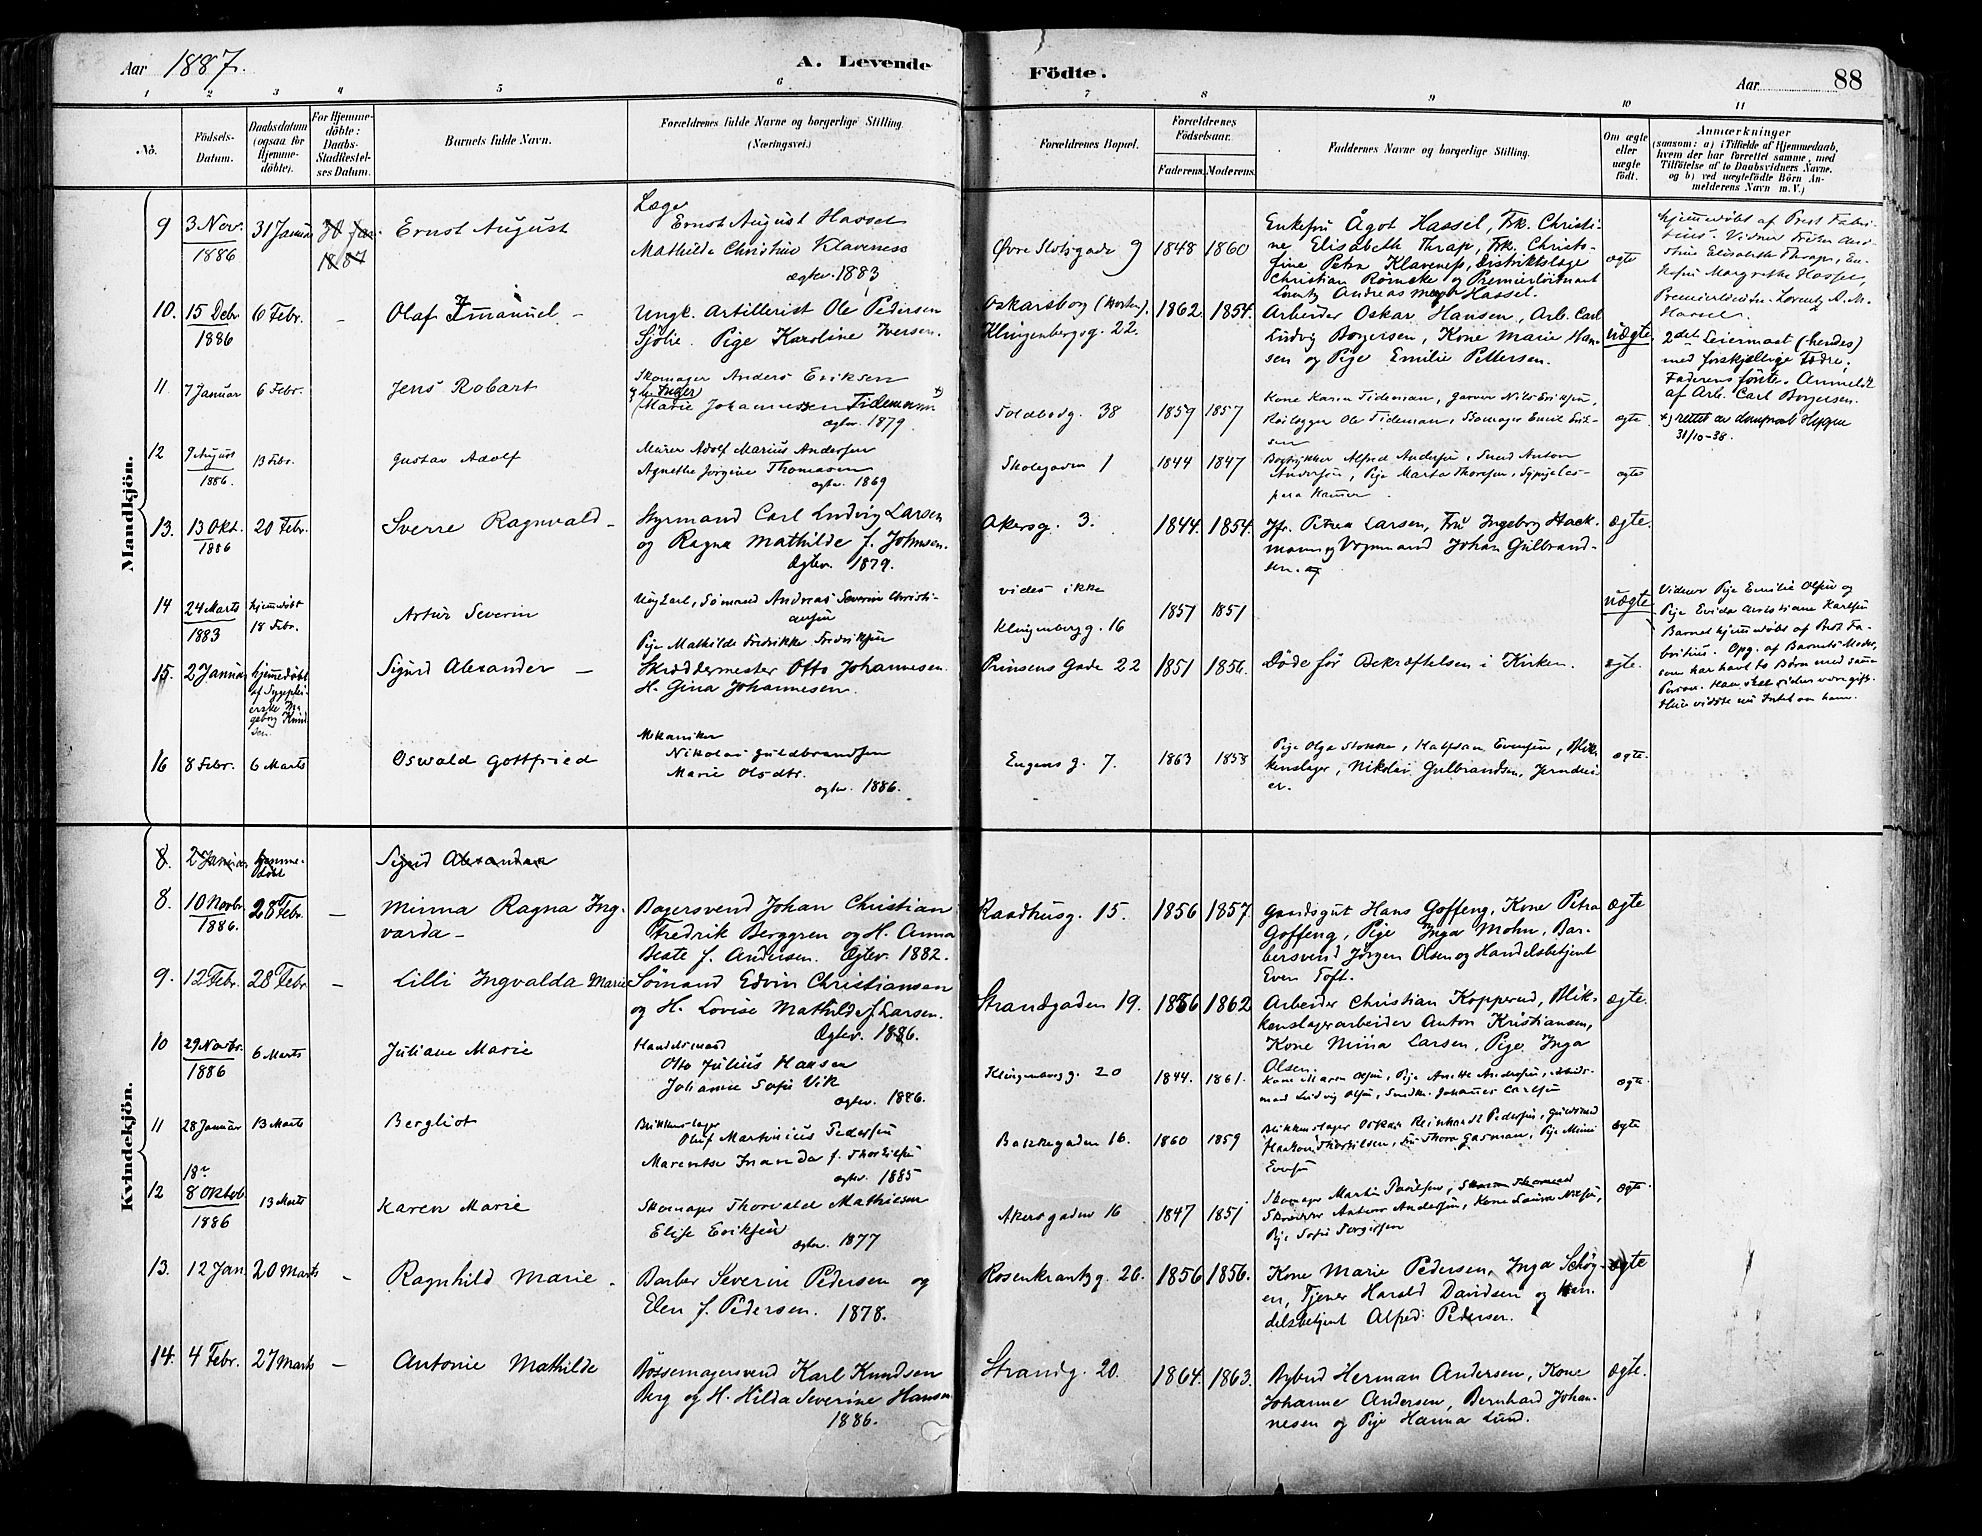 Aar 1887.
A. Levende
Födte.
Aar
88
1 2 3 4 5 6 7 8 9 10 11
No.
Födsels-
Datum.
Daabsdatum
(ogsaa for
Hjemme-
döbte).
For Hjemme-
döbte:
Daabs-
Stadfæstel-
ses Datum.
Barnets fulde Navn.
Forældrenes fulde Navne og borgerlige Stilling.
(Næringsvei.)
Forældrenes Bopæl.
Forældrenes
Födselsaar.
Faderens. Moderens.
Faddernes Navne og borgerlige Stilling.
Om ægte
eller
uægte
födt.
Anmærkninger
(saasom: a) i Tilfælde af Hjemmedaab,
hvem der har forrettet samme, med
Tilföielse af to Daabsvidners Navne,
og b) ved uægtefödte Börn An-
melderens Navn m. V.)
Mandkjön.
9 3 Nov. 1886
31 Januar
30 Jan. 1887
Ernst August
Læge
Ernst August Hassel
Mathilde Christine Klaveness
ægtev. 1883
Øvre Slotsgade 9
1848 1860
Enkefru Ågot Hassel, Frk. Christi-
ne Elisabeth Thrap, Frk. Christ-
fine Petra Klaveness, Distriktslæge
Christian Rømcke og Premierløitnant
Lorentz Andreas Hassel.
ægte
hjemmedøbt af Prest Fabri-
tius. Vidner Frøken
Elisabeth Thrap, En-
kefru Margrethe Hassel,
Premierløitn. Lorentz A. M.
Hassel.
10. 15 Debr 1886
6 Febr.
-
Olaf Immanuel -
Ungk. Artillerist Ole Pedersen
Sjölie. Pige Karoline Iversen.
Oskarsborg (Horten).
Klingenbergsg. 22.
1862. 1854.
Arbeider Oskar Hansen, Arb. Carl
Ludvig Borgersen, Kone Marie Han-
sen og Pige Emilie Pettersen.
uægte
2det Leiermaal (hendes)
med forskjellige Fædre;
Faderens første. Anmeldt
af Arb. Carl Borgersen.
11. 7 Januar
6 Febr.
Jens Robart
Skomager Anders Eriksen
Inger
Marie Johannessen Tidemann +)
ægtev. 1879
Toldbodg. 38
1859 1857
Kone Karen Tideman, Garver Nils Eriksen,
Ole Tideman, Skomager Emil Erik-
sen
ægte
+) rettet av domprost Hygen
31/10-38.
12 9 August 1886.
13 Febr.
Gustav Adolf
Murer Adolf Marius Andersen
Agnethe Jørgine Thomasen
ægtev. 1869
Skolegaden 1
1844 1847
Bogtrykker Alfred Andersen, Svend Anton
Andersen, Pige Marta Thoresen, Sypige Les-
pera Hammer
ægte
13. 13 Okt. 1886
20 Febr.
Sverre Ragnvald -
Styrmand Carl Ludvig Larsen
og Ragna Mathilde f. Johnsen.
Ægtev. 1879.
Akersg. 3.
1844. 1854.
Jfr. Petrea Larsen, Fru Ingeborg Hack-
mann og Vognmand Johan Gulbrand-
sen.
ægte.
14 24 Marts 1883
hjemmedøbt
18 Febr.
Artur Severin
Ungkarl, Sömand Andreas Severin Christi-
ansen
Pige Mathilde Fredrikke Fredriksen
vides ikke
Klingenbergg. 16
1857 1851
uægte
Vidner Pige Emilie Olsen og
Pige Evida Christiane Karlsen
Barnet hjemmedøbt af Prest Fa-
britius. Opg. af Barnets Moder,
som har havt to Børn med samme
Person. Han skal siden være gift.
Hun vidste nu Intet om ham.
15. 2 Januar
hjemmedøbt
af Sygeplei-
erske In-
geborg Knud-
sen.
Sigurd Alexander -
Skræddermester Otto Johannesen.
H. Gina Johannesen.
Prinsens Gade 22
1851 1856.
Døde før Bekræftelsen i Kirken.
ægte.
16 8 Febr.
6 Marts
Oswald Gottfried
Mekaniker
Nikolai Guldbrandsen
Marie Olsdtr.
ægtev. 1886.
Engens g. 7.
1863 1858
Pige Olga Stokke, Halfdan Evensen, Blik-
kenslager, Nikolai Gulbrandsen, Jerndrei-
er.
ægte.
Kvindekjön.
8. 2 Januar
hjemme-
døbt
Sigrid Alexandra
8. 10 Novbr 1886.
28 Febr.
-
Minna Ragna Ing-
varda -
Bagersvend Johan Christian
Fredrik Berggren og H. Anna
Beate f. Andersen. Ægtev. 1882.
Raadhusg. 15.
1856 1857.
Gaardsgut Hans Goffeng, Kone Petra
Goffeng, Pige Inga Mohn, Bar-
bersvend Jörgen Olsen og Handelsbetjent
Even Toft.
ægte
9. 12 Febr.
28 Febr.
-
Lilli Ingvalda Marie
Sömand Edvin Christiansen
og H. Lovise Mathilde f. Larsen.
Ægtev. 1886.
Strandgaden 19.
1886 1862
Arbeider Christian Kopperud, Blik-
kenslagerarbeider Anton Kristiansen,
Kone Mina Larsen, Pige Inga
Olsen.
ægte.
10 29 Novbr. 1886
6 Marts
Juliane Marie
Handelsmand
Otto Julius Hansen
Johanne Sofie Vik
ægtev. 1886.
Klingenbergg. 20
1844. 1861.
Kone Maren Olsen, Pige Anette Andersen, Arbeids-
mand Ludvig Olsen, Snedker Johannes Carlsen
ægte.
11 28 Januar
13 Marts
Bergliot
Blikkenslager
Oluf Martinius Pedersen
Marentse Inanda f. Thorkilsen
ægtev. 1885
Bakkegaden 16.
1860 1859
Blikkenslager Oskar Reinhardt Pedersen, Guldsmed
Haakon Thorkilsen, Fru Thora Gasman, Pige Minni
Evensen
ægte
12 18n 8 Oktob. 1886
13 Marts
Karen Marie
Skomager Thorvald Mathisen
Elise Eriksen
ægtev. 1877
Akersgaden 16
1847 1851
Skomager Martin Paulsen,
Skrædder Anton Andersen, Kone Laura Nilsen,
Pige Sofie Torgersen
ægte.
13. 12 Jan.
20 Marts
-
Ragnhild Marie.
Barber Severin Pedersen og
Elen f. Pedersen. 1878.
Rosenkrantzg. 26.
1856 1856.
Kone Marie Pedersen, Inga Schøy-
en, Tjener Harald Davidsen og Han-
delsbetjent Alfred Pedersen.
ægte
14. 4 Febr.
27 Marts
-
Antonie Mathilde
Bössemagersvend Karl Knudsen
Berg og H. Hilda Severine Hansen
1886.
Strandg. 20.
1864. 1863.
Bybud Herman Andersen, Kone
Johanne Andersen, Bernhard Johan-
nesen og Pige Hanna Lund.
ægte.